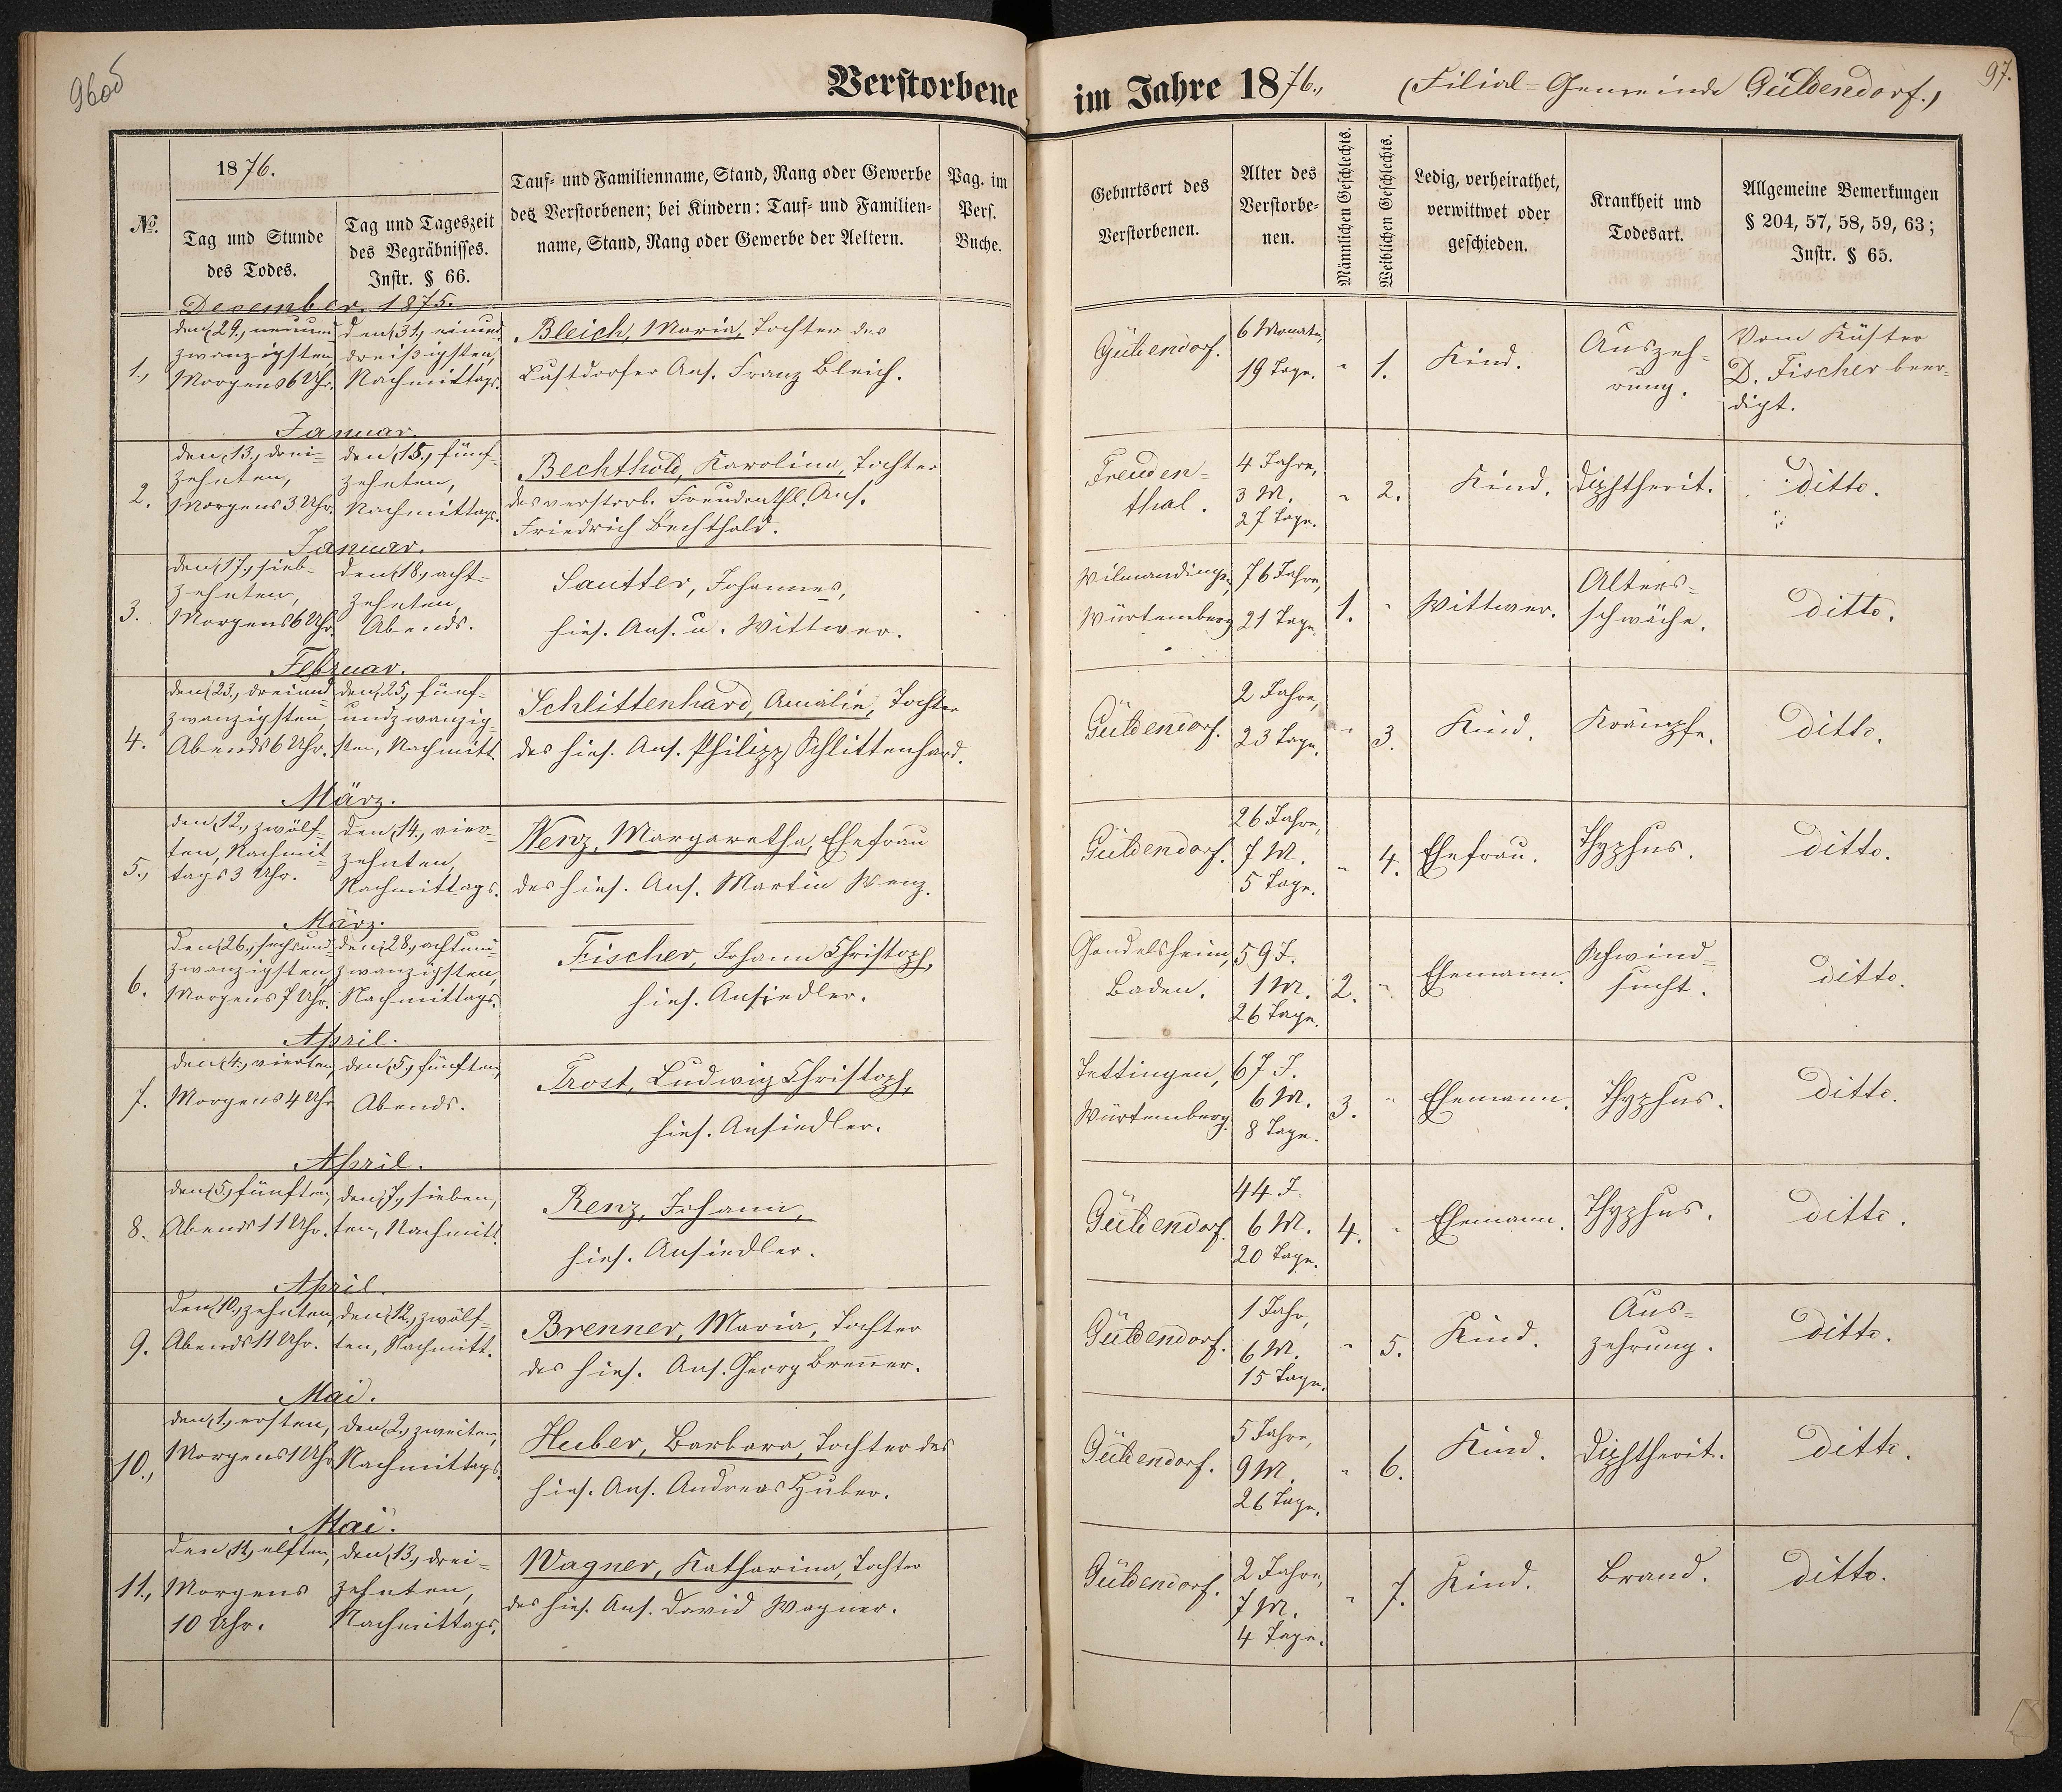 96об
97.
Verstorbene im Jahre 1876., (Filial-Gemeinde Güldendorf.)
No.
1876.
Tag und Stunde
des Todes.
Tag und Tageszeit
des Begräbnisses.
Instr. § 66.
Tauf- und Familienname, Stand, Rang oder Gewerbe
des Verstorbenen; bei Kindern: Tauf- und Familien-
name, Stand, Rang oder Gewerbe der Aeltern.
Pag. im
Pers.
Buche.
Geburtsort des
Verstorbenen.
Alter des
Verstorbe-
nen.
Männlichen Geschlechts.
Weiblichen Geschlechts.
Ledig, verheirathet,
verwittwet oder
geschieden.
Krankheit und
Todesart.
Allgemeine Bemerkungen
§ 204, 57, 58, 59, 63;
Instr. § 65.
December, 1875.
1.,
den 29., neunund
zwanzigsten
Morgens 6 Uhr.
den 31., einund
dreißigsten,
Nachmittags.
Bleich, Maria, Tochter des
Lustdorfer Ans. Franz Bleich.
Güldendorf.
6 Monate,
19 Tage.
"
1.
Kind.
Auszeh-
rung.
Vom Küster
D. Fischer beer-
digt.
Januar.
2.
den 13., drei-
zehnten,
Morgens 3 Uhr.
den 15., fünf-
zehnten,
Nachmittags.
Bechthold, Karolina, Tochter
des verstorb. Freudenthl. Ans.
Friedrich Bechthold.
Freuden-
thal.
4 Jahre,
3 M.
27 Tage.
"
2.
Kind.
Diphtherit.
ditto.
Januar.
3.
den 17., sieb-
zehnten,
Morgens 6 Uhr.
den 18., acht-
zehnten,
Abends.
Sautter, Johannes,
hies. Ans. u. Wittwer.
Wilmandingen,
Würtemberg
76 Jahre,
21 Tage.
1.
"
Wittwer.
Alters-
schwäche.
ditto.
Februar.
4.
den 23., dreiund
zwanzigsten
Abends 6 Uhr.
den 25., fünf-
undzwanzig-
sten, Nachmitt.
Schlittenhard, Amalie, Tochter
des hies. Ans. Philipp Schlittenhard.
Güldendorf.
2 Jahre,
23 Tage.
"
3.
Kind.
Krämpfe.
ditto.
März.
5.,
den 12., zwölf-
ten, Nachmit-
tags 3 Uhr.
den 14., vier-
zehnten,
Nachmittags.
Wenz, Margaretha, Ehefrau
des hies. Ans. Martin Wenz.
Güldendorf.
26 Jahre,
7 M.
5 Tage.
"
4.
Ehefrau.
Thyphus.
ditto.
März.
6.
den 26., sechsund
zwanzigsten
Morgens 7 Uhr.
den 28., achtund-
zwanzigsten,
Nachmittags.
Fischer, Johann Christoph,
hies. Ansiedler.
Gondelsheim,
Baden.
59 J.
1 M.
26 Tage.
2.
"
Ehemann.
Schwind-
sucht.
ditto.
April.
7.
den 4., vierten,
Morgens 4 Uhr
den 5., fünften,
Abends.
Trost, Ludwig Christoph,
hies. Ansiedler.
Tettingen,
Würtemberg.
67 J.
6 M.
8 Tage.
3.
"
Ehemann.
Thyphus.
ditto.
April.
8.
den 5., fünften,
Abends 11 Uhr.
den 7., sieben,
ten, Nachmitt.
Renz, Johann,
hies. Ansiedler.
Güldendorf.
44 J.
6 M.
20 Tage.
4.
"
Ehemann.
Thyphus.
ditto.
April.
9.
den 10., zehnten,
Abends 11 Uhr.
den 12., zwölf-
ten, Nachmitt.
Brenner, Maria, Tochter
des hies. Ans. Georg Brenner.
Güldendorf.
1 Jahr,
6 M.
15 Tage.
"
5.
Kind.
Aus-
zehrung.
ditto.
Mai.
10.,
den 1., ersten,
Morgens 1 Uhr
den 2., zweiten,
Nachmittags.
Huber, Barbara, Tochter des
hies. Ans. Andreas Huber.
Güldendorf.
5 Jahre,
9 M.
26 Tage.
"
6.
Kind.
Diphtherit.
ditto.
Mai.
11.,
den 11., elften,
Morgens
10 Uhr.
den 13., drei-
zehnten,
Nachmittags.
Wagner, Katharina, Tochter
des hies. Ans. David Wagner.
Güldendorf.
2 Jahre,
7 M.
4 Tage.
"
7.
Kind.
Brand.
ditto.